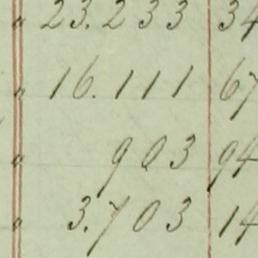 " 23.233 34
" 16.111 67
" 903 94
" 3.703 14